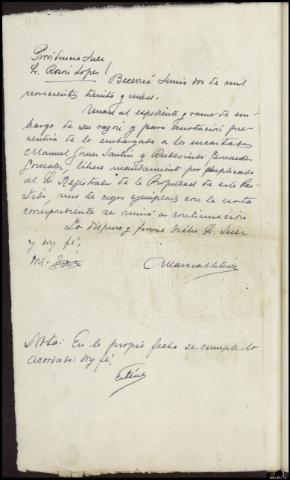 Providencia Juez
Sr. Rosón López
Becerreá Junio dos de mil
novecientos treinta y nueve.
Unase al expediente y ramo de em-
bargo de su razón y para anotación pre-
ventiva de lo embargado a los encartados
Manuel Gómez Santín y Fernández
González, líbrese mandamiento por duplicado
al Sr. Registrador de la Propiedad de este Par-
tido, uno de cuyos ejemplares con la nota
correspondiente se unirá a continuación
Lo dispuso y firma dicho Sr. Juez
y doy fé.
M.
Nota: En la propia fecha se cumple lo
acordado: doy fé.